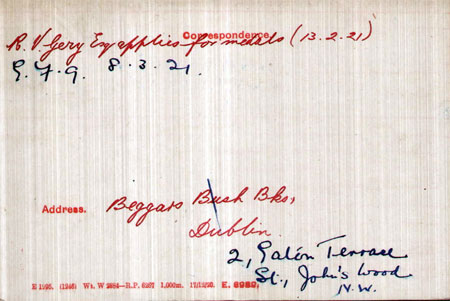 Correspondence.
R. V. Gery Esq applies for medals (13.2.21)
E.F.9. 8.3.21.
Address. Beggars Bush Bks,
Dublin.
2, Eaton Terrace
St., John's Wood
N.W.
E 1525. (1248) Wt. W 2484—R.P. 6287 1,000m. 17/12/20. E. 6989.